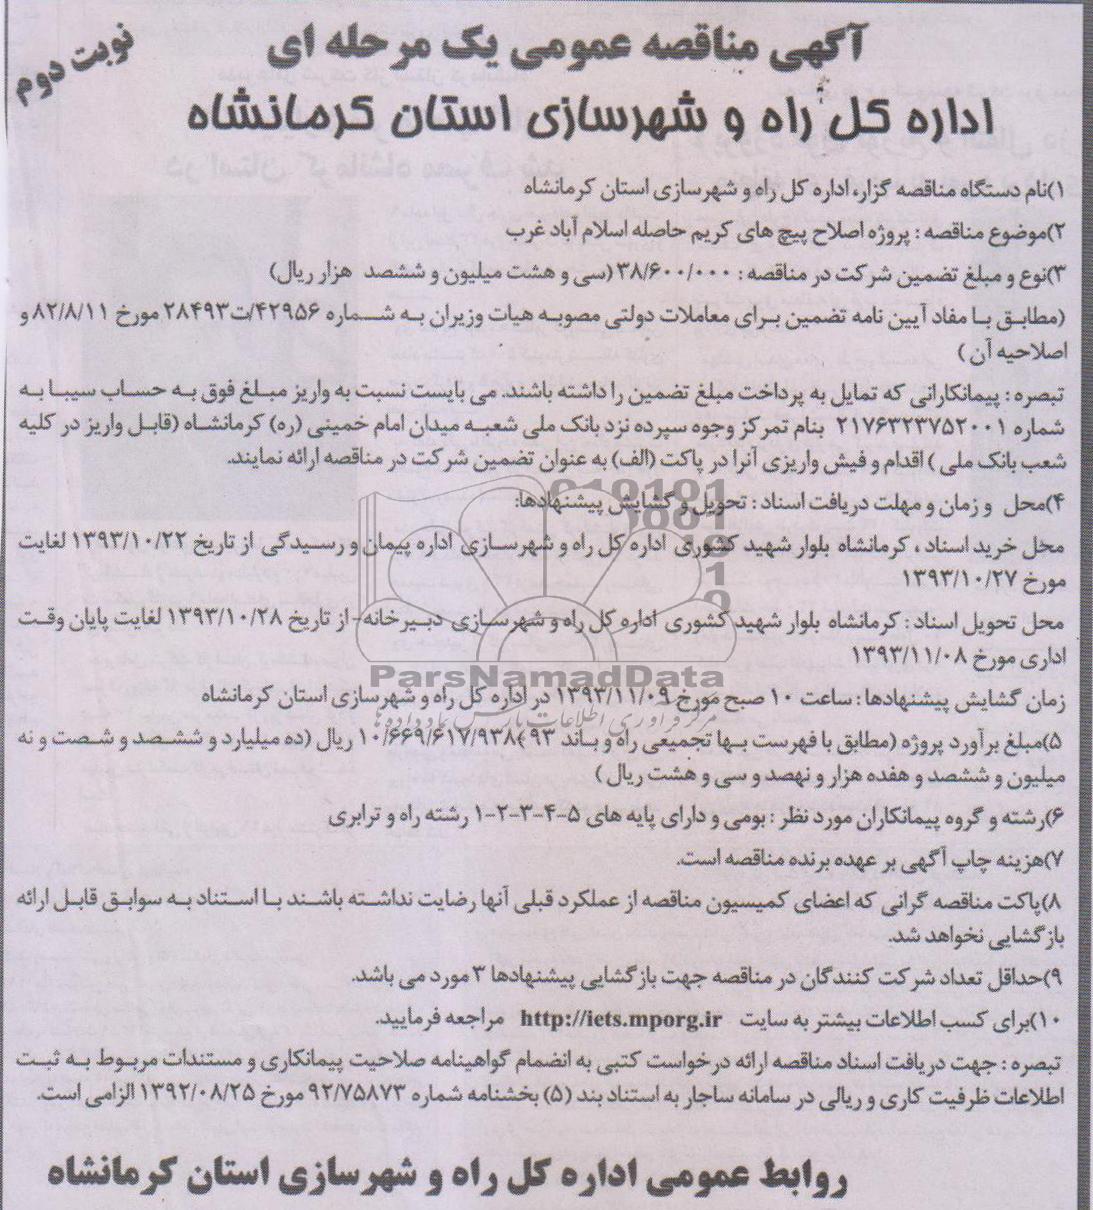 آگهی مناقصه عمومی یک مرحله ای
نوبت دوم
اداره کل راه و شهرسازی استان کرمانشاه
۱)نام دستگاه مناقصه گزار، اداره کل راه و شهرسازی استان کرمانشاه
۲)موضوع مناقصه : پروژه اصلاح پیچ های کریم حاصله اسلام آباد غرب
۳)نوع و مبلغ تضمین شرکت در مناقصه : ۳۸/۶۰۰/۰۰۰ (سی و هشت میلیون و ششصد هزار ریال)
(مطابق با مفاد آیین نامه تضمین برای معاملات دولتی مصوبه هیات وزیران به شماره ۴۲۹۵۶/ت۲۸۴۹۳ مورخ ۸۲/۸/۱۱ و
اصلاحیه آن )
تبصره : پیمانکارانی که تمایل به پرداخت مبلغ تضمین را داشته باشند. می بایست نسبت به واریز مبلغ فوق به حساب سیبا به
شماره ۲۱۷۶۳۲۳۷۵۲۰۰۱ بنام تمرکز وجوه سپرده نزد بانک ملی شعبه میدان امام خمینی (ره) کرمانشاه (قابل واریز در کلیه
شعب بانک ملی ) اقدام و فیش واریزی آنرا در پاکت (الف) به عنوان تضمین شرکت در مناقصه ارائه نمایند.
۴)محل و زمان و مهلت دریافت اسناد : تحویل و گشایش پیشنهادها:
محل خرید اسناد ، کرمانشاه بلوار شهید کشوری اداره کل راه و شهرسازی اداره پیمان و رسیدگی از تاریخ ۱۳۹۳/۱۰/۲۲ لغایت
مورخ ۱۳۹۳/۱۰/۲۷
محل تحویل اسناد : کرمانشاه بلوار شهید کشوری اداره کل راه و شهرسازی دبیرخانه- از تاریخ ۱۳۹۳/۱۰/۲۸ لغایت پایان وقت
اداری مورخ ۱۳۹۳/۱۱/۰۸
زمان گشایش پیشنهادها : ساعت ۱۰ صبح مورخ ۱۳۹۳/۱۱/۰۹ در اداره کل راه و شهرسازی استان کرمانشاه
۵)مبلغ برآورد پروژه (مطابق با فهرست بها تجمیعی راه و باند ۹۳) ۱۰/۶۶۹/۶۱۷/۹۳۸ ریال (ده میلیارد و ششصد و شصت و نه
میلیون و ششصد و هفده هزار و نهصد و سی و هشت ریال )
۶)رشته و گروه پیمانکاران مورد نظر : بومی و دارای پایه های ۵-۴-۳-۲-۱ رشته راه و ترابری
۷)هزینه چاپ آگهی بر عهده برنده مناقصه است.
۸)پاکت مناقصه گرانی که اعضای کمیسیون مناقصه از عملکرد قبلی آنها رضایت نداشته باشند با استناد به سوابق قابل ارائه
بازگشایی نخواهد شد.
۹)حداقل تعداد شرکت کنندگان در مناقصه جهت بازگشایی پیشنهادها ۳ مورد می باشد.
۱۰)برای کسب اطلاعات بیشتر به سایت http://iets.mporg.ir مراجعه فرمایید.
تبصره : جهت دریافت اسناد مناقصه ارائه درخواست کتبی به انضمام گواهینامه صلاحیت پیمانکاری و مستندات مربوط به ثبت
اطلاعات ظرفیت کاری و ریالی در سامانه ساجار به استناد بند (۵) بخشنامه شماره ۹۲/۷۵۸۷۳ مورخ ۱۳۹۲/۰۸/۲۵ الزامی است.
روابط عمومی اداره کل راه و شهرسازی استان کرمانشاه
ParsNamadData
مرکز فرآوری اطلاعات پارس نماد داده ها